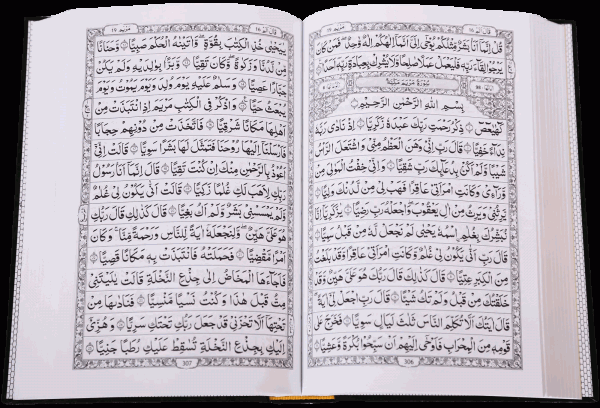 قال الم ١٦
مریم ١٩
قُلْ اِنَّمَاۤ اَنَا بَشَرٌ مِّثْلُكُمْ یُوْحٰۤی اِلَیَّ اَنَّمَاۤ اِلٰهُكُمْ اِلٰهٌ وَّاحِدٌ ۚ فَمَنْ كَانَ
یَرْجُوْا لِقَآءَ رَبِّهٖ فَلْیَعْمَلْ عَمَلًا صَالِحًا وَّلَا یُشْرِكْ بِعِبَادَةِ رَبِّهٖۤ اَحَدًا
سُوْرَةُ مَرْیَمَ مَكِّیَّةٌ
بِسْمِ اللّٰهِ الرَّحْمٰنِ الرَّحِیْمِ
كٓهٰیٰعٓصٓ ۝ ذِكْرُ رَحْمَتِ رَبِّكَ عَبْدَهٗ زَكَرِیَّا ۝ اِذْ نَادٰی رَبَّهٗ
نِدَآءً خَفِیًّا ۝ قَالَ رَبِّ اِنِّیْ وَهَنَ الْعَظْمُ مِنِّیْ وَاشْتَعَلَ الرَّاْسُ
شَیْبًا وَّلَمْ اَكُنْۢ بِدُعَآئِكَ رَبِّ شَقِیًّا ۝ وَاِنِّیْ خِفْتُ الْمَوَالِیَ مِنْ
وَّرَآءِیْ وَكَانَتِ امْرَاَتِیْ عَاقِرًا فَهَبْ لِیْ مِنْ لَّدُنْكَ وَلِیًّا ۝
یَّرِثُنِیْ وَیَرِثُ مِنْ اٰلِ یَعْقُوْبَ وَاجْعَلْهُ رَبِّ رَضِیًّا ۝ یٰزَكَرِیَّاۤ اِنَّا
نُبَشِّرُكَ بِغُلٰمِ اِۨسْمُهٗ یَحْیٰی لَمْ نَجْعَلْ لَّهٗ مِنْ قَبْلُ سَمِیًّا ۝
قَالَ رَبِّ اَنّٰی یَكُوْنُ لِیْ غُلٰمٌ وَّكَانَتِ امْرَاَتِیْ عَاقِرًا وَّقَدْ بَلَغْتُ
مِنَ الْكِبَرِ عِتِیًّا ۝ قَالَ كَذٰلِكَ قَالَ رَبُّكَ هُوَ عَلَیَّ هَیِّنٌ وَّقَدْ
خَلَقْتُكَ مِنْ قَبْلُ وَلَمْ تَكُ شَیْئًا ۝ قَالَ رَبِّ اجْعَلْ لِّیْۤ اٰیَةً
قَالَ اٰیَتُكَ اَلَّا تُكَلِّمَ النَّاسَ ثَلٰثَ لَیَالٍ سَوِیًّا ۝ فَخَرَجَ عَلٰی
قَوْمِهٖ مِنَ الْمِحْرَابِ فَاَوْحٰۤی اِلَیْهِمْ اَنْ سَبِّحُوْا بُكْرَةً وَّعَشِیًّا ۝
306
قال الم ١٦
مریم ١٩
یٰیَحْیٰی خُذِ الْكِتٰبَ بِقُوَّةٍ وَاٰتَیْنٰهُ الْحُكْمَ صَبِیًّا ۝ وَّحَنَانًا
مِّنْ لَّدُنَّا وَزَكٰوةً وَكَانَ تَقِیًّا ۝ وَّبَرًّۢا بِوَالِدَیْهِ وَلَمْ یَكُنْ
جَبَّارًا عَصِیًّا ۝ وَسَلٰمٌ عَلَیْهِ یَوْمَ وُلِدَ وَیَوْمَ یَمُوْتُ وَیَوْمَ
یُبْعَثُ حَیًّا ۝ وَاذْكُرْ فِی الْكِتٰبِ مَرْیَمَ اِذِ انْتَبَذَتْ مِنْ
اَهْلِهَا مَكَانًا شَرْقِیًّا ۝ فَاتَّخَذَتْ مِنْ دُوْنِهِمْ حِجَابًا
فَاَرْسَلْنَاۤ اِلَیْهَا رُوْحَنَا فَتَمَثَّلَ لَهَا بَشَرًا سَوِیًّا ۝ قَالَتْ اِنِّیْۤ
اَعُوْذُ بِالرَّحْمٰنِ مِنْكَ اِنْ كُنْتَ تَقِیًّا ۝ قَالَ اِنَّمَاۤ اَنَا رَسُوْلُ
رَبِّكِ لِاَهَبَ لَكِ غُلٰمًا زَكِیًّا ۝ قَالَتْ اَنّٰی یَكُوْنُ لِیْ غُلٰمٌ
وَّلَمْ یَمْسَسْنِیْ بَشَرٌ وَّلَمْ اَكُ بَغِیًّا ۝ قَالَ كَذٰلِكِ قَالَ رَبُّكِ
هُوَ عَلَیَّ هَیِّنٌ وَلِنَجْعَلَهٗۤ اٰیَةً لِّلنَّاسِ وَرَحْمَةً مِّنَّا وَكَانَ
اَمْرًا مَّقْضِیًّا ۝ فَحَمَلَتْهُ فَانْتَبَذَتْ بِهٖ مَكَانًا قَصِیًّا ۝
فَاَجَآءَهَا الْمَخَاضُ اِلٰی جِذْعِ النَّخْلَةِ قَالَتْ یٰلَیْتَنِیْ
مِتُّ قَبْلَ هٰذَا وَكُنْتُ نَسْیًا مَّنْسِیًّا ۝ فَنَادٰىهَا مِنْ
تَحْتِهَاۤ اَلَّا تَحْزَنِیْ قَدْ جَعَلَ رَبُّكِ تَحْتَكِ سَرِیًّا ۝ وَهُزِّیْۤ
اِلَیْكِ بِجِذْعِ النَّخْلَةِ تُسٰقِطْ عَلَیْكِ رُطَبًا جَنِیًّا ۝
307